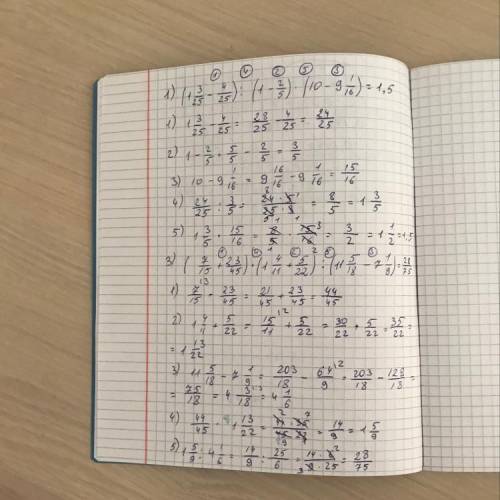 ① ④ ② ⑤ ③
1) (1 3/25 - 4/25) : (1 - 2/5) · (10 - 9 1/16) = 1,5
1) 1 3/25 - 4/25 = 28/25 - 4/25 = 24/25
2) 1 - 2/5 = 5/5 - 2/5 = 3/5
3) 10 - 9 1/16 = 9 16/16 - 9 1/16 = 15/16
4) 24/25 : 3/5 = 24·5/25·3 = 8/5 = 1 3/5
5) 1 3/5 · 15/16 = 8/5 · 15/16 = 3/2 = 1 1/2 = 1,5
3) (7/15 + 23/45) · (1 4/11 + 5/22) : (11 5/18 - 7 1/9) = 28/75
1) 7/15 + 23/45 = 21/45 + 23/45 = 44/45
2) 1 4/11 + 5/22 = 15/11 + 5/22 = 30/22 + 5/22 = 35/22 =
= 1 13/22
3) 11 5/18 - 7 1/9 = 203/18 - 64/9 = 203/18 - 128/18 =
= 75/18 = 4 3/18 = 4 1/6
4) 44/45 · 1 13/22 = 44·35/45·22 = 14/9 = 1 5/9
5) 1 5/9 : 4 1/6 = 14/9 : 25/6 = 14·6/9·25 = 28/75